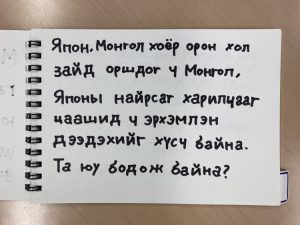 Япон, Монгол хоёр орон хол
зайд оршдог ч Монгол,
Японы найрсаг харилцааг
цаашид ч эрхэмлэн
дээдэхийг хүсч байна.
Та юу бодож байна?